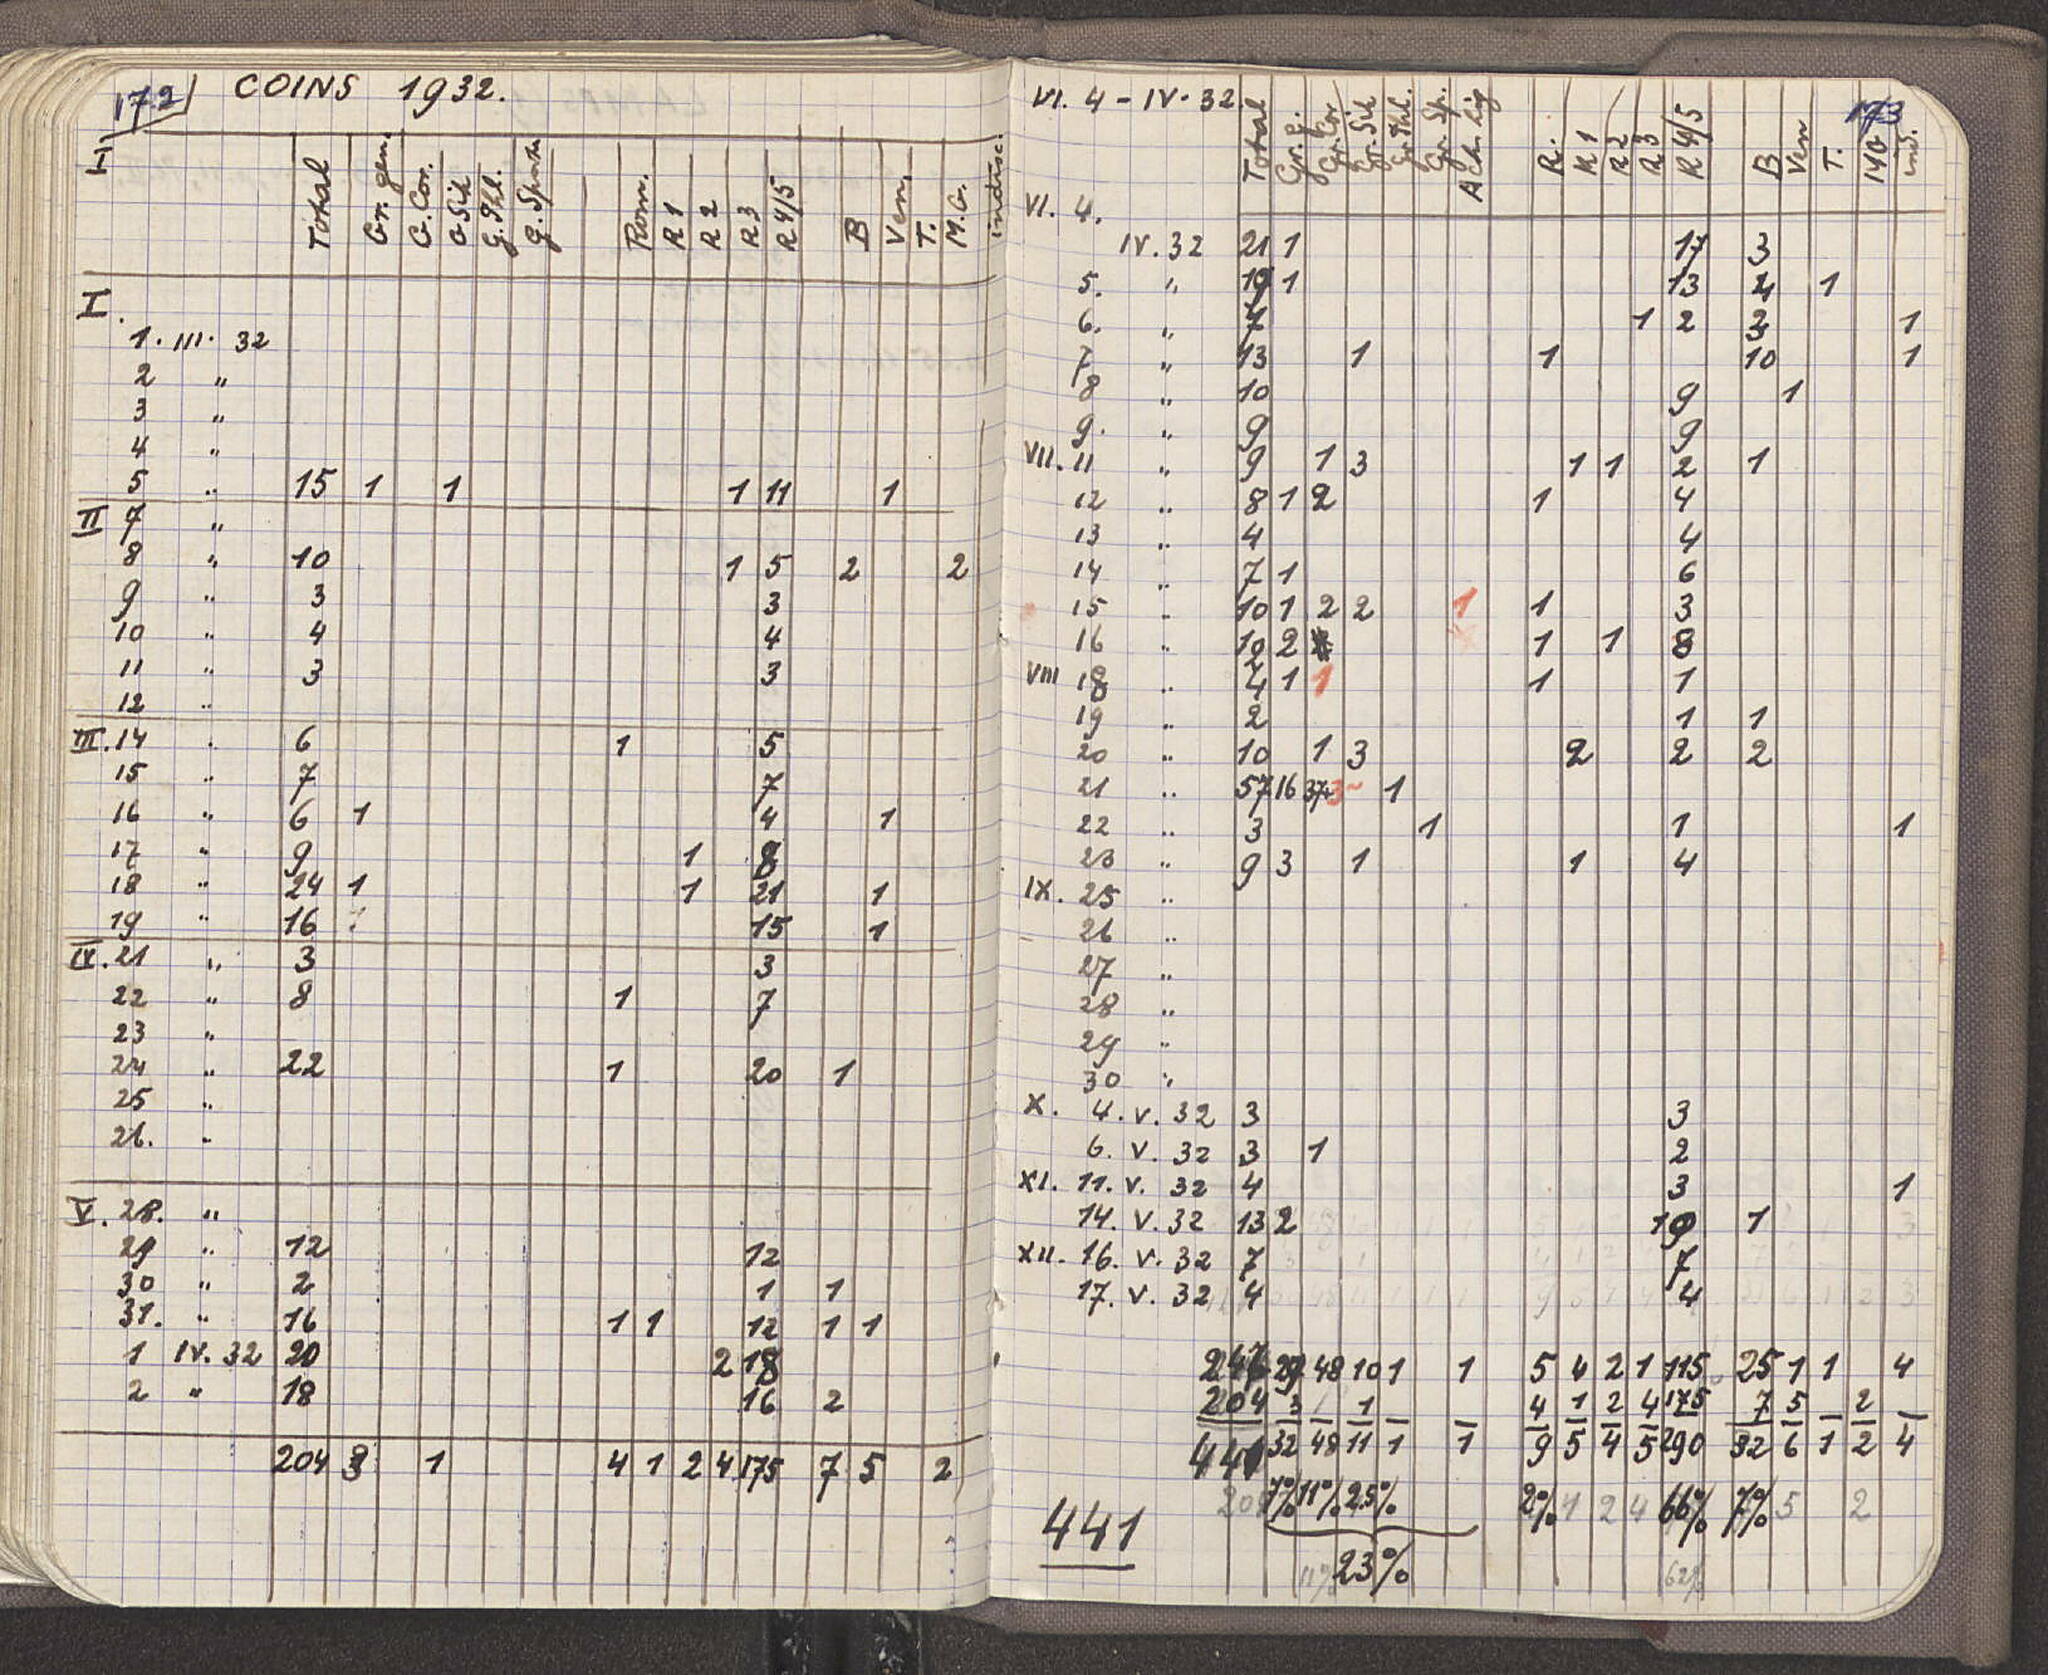 172 COINS 1932.
H Total Gr. gen. G. Cor. G Sik G. Thl. Rom. R 1 R 2 R 3 R 4/5 B Ven. T. M. G. indisc.
I.
1. III. 32
2 "
3 "
4 "
5 " 15 1 1 1 11 1
II 7 "
8 " 10 1 5 2 2
9 " 3 3
10 " 4 4
11 " 3 3
12 "
III. 14 " 6 1 5
15 " 7 7
16 " 6 1 4 1
17 " 9 1 8
18 " 24 1 1 21 1
19 " 16 15 1
IV. 21 " 3 3
22 " 8 1 7
23 "
24 " 22 1 20 1
25 "
26. "
V. 28. "
29 " 12 12
30 " 2 1 1
31. " 16 1 1 12 1 1
1 IV. 32 20 2 18
2 " 18 16 2
204 3 1 4 1 2 4 175 7 5 2
173
VI. 4 - IV. 32. Total Gr. g. Gr. Cor Gr. Sik Gr. Thl. Gr. Sp. Ach. Lig R. R 1 R 2 R 3 R 4/5 B Ven T. ind.
VI. 4.
IV. 32 21 1 17 3
5. " 19 1 13 4 1
6. " 7 1 2 3 1
7 " 13 1 1 10 1
8 " 10 9 1
9. " 9 9
VII. 11 " 9 1 3 1 1 2 1
12 " 8 1 2 1 4
13 " 4 4
14 " 7 1 6
15 " 10 1 2 2 1 1 3
16 " 2 1 1 8
VIII 18 " 4 1 1 1 1
19 " 2 1 1
20 " 10 1 3 2 2 2
21 " 57 16 37+3 1
22 " 3 1 1 1
23 " 9 3 1 1 4
IX. 25 "
26 "
27 "
28 "
29 "
30 "
X. 4. V. 32 3 3
6. V. 32 3 1 2
XI. 11. V. 32 4 3 1
14. V. 32 13 2 10 1
XII. 16. V. 32 7 7
17. V. 32 4 4
29 48 10 1 1 5 4 2 1 115 25 1 1 4
204 3 1 4 1 2 4 175 7 5 2
441 32 48 11 1 1 9 5 4 5 290 32 6 1 2 4
7% 11% 2.5% 2% 1 2 4 66% 7% 5 2
441
11% 23% 62%